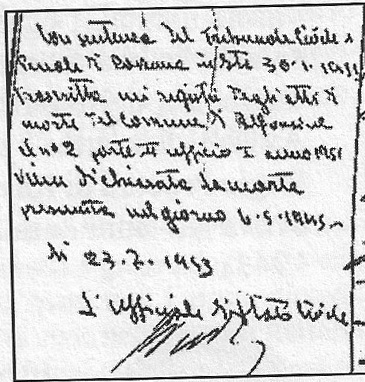 Con sentenza del Tribunale Civile e
Penale di Ravenna in data 30.1.1951
trascritta nei registri degli atti di
morte del Comune di Alfonsine
al n° 2 parte II ufficio I anno 1951
viene dichiarata la morte
presunta nel giorno 6.5.1945.
lì 23.7.1953
L'Ufficiale di Stato Civile